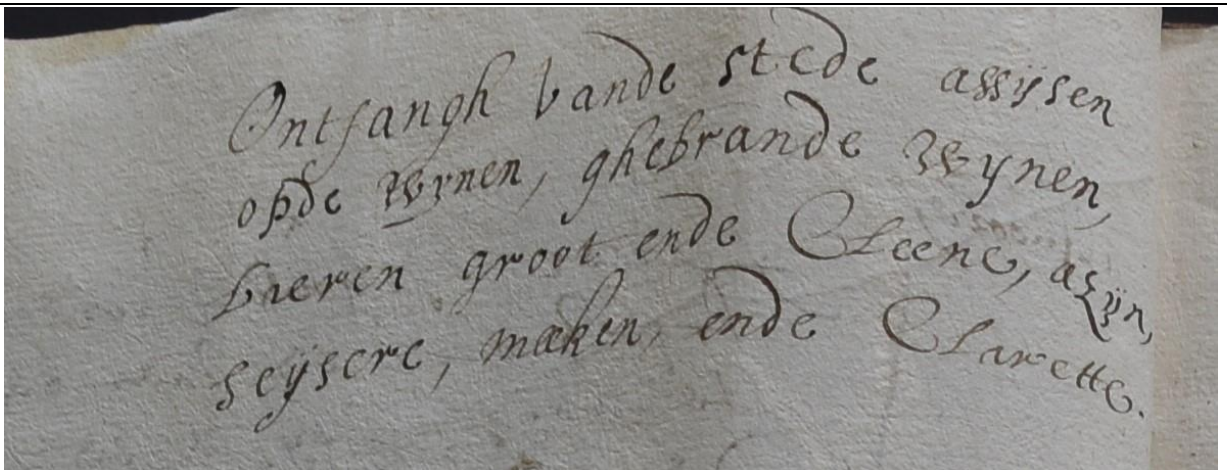 Ontfangh vande stede assijsen
opde wynen, ghebrande wynen,
bieren groot ende Cleene, azijn,
seijsere, maken, ende Clarette.